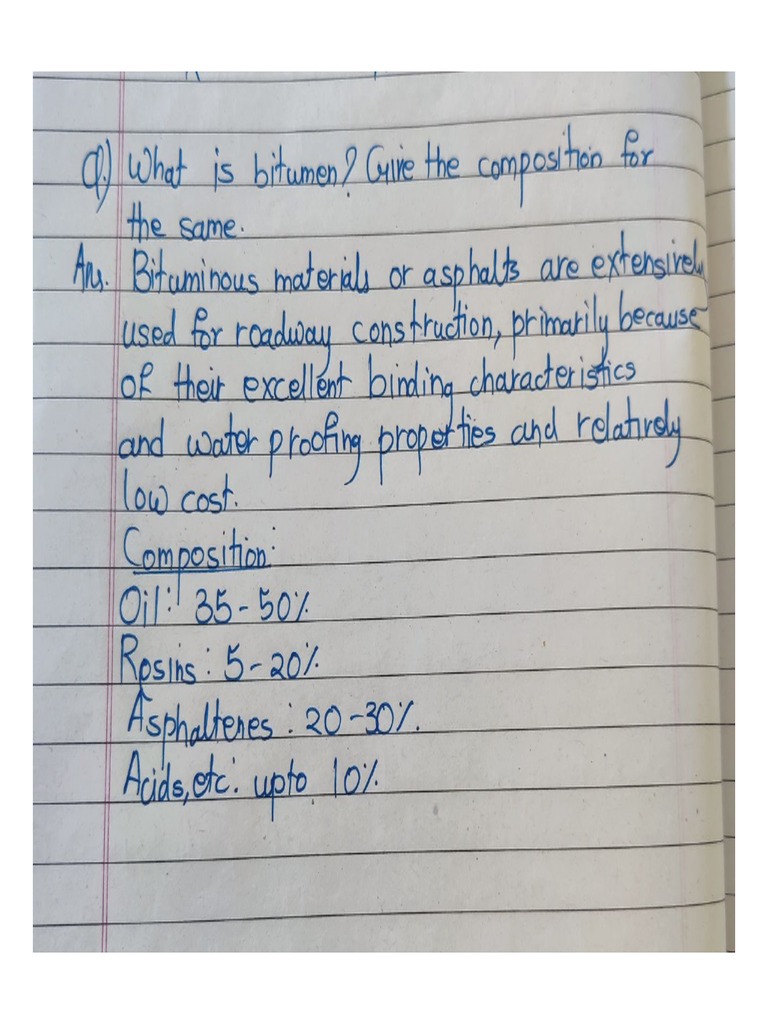 Q.) What is bitumen? Give the composition for
the same.
Ans. Bituminous materials or asphalts are extensively
used for roadway construction, primarily because
of their excellent binding characteristics
and water proofing properties and relatively
low cost.
Composition:
Oil: 35-50%
Rosins: 5-20%
Asphaltenes: 20-30%.
Acids, etc: upto 10%